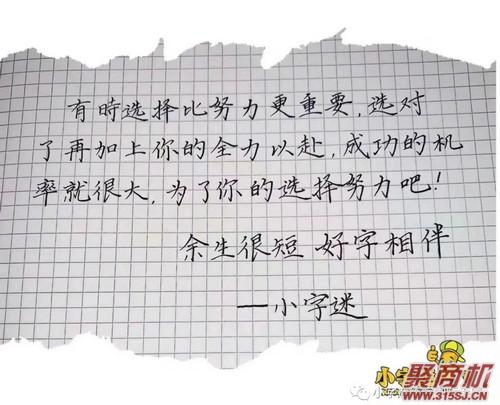 有時选择比努力更重要,选对
了再加上你的全力以赴,成功的机
率就很大,为了你的选择努力吧!
余生很短 好字相伴
—小字迷
小字
聚商机
www.315SJ.CN